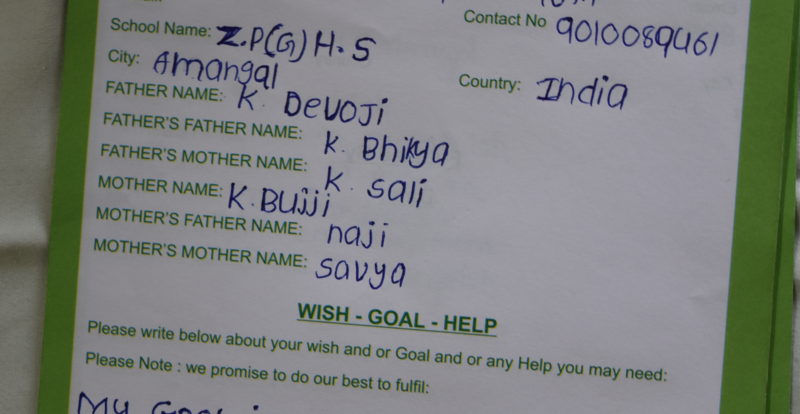 School Name: Z.P(G) H.S
Contact No 9010089461
City: Amangal
Country: India
FATHER NAME: K. Devoji
FATHER'S FATHER NAME: K. Bhikya
FATHER'S MOTHER NAME: K. Sali
MOTHER NAME: K.Bujji
MOTHER'S FATHER NAME: naji
MOTHER'S MOTHER NAME: savya
WISH - GOAL - HELP
Please write below about your wish and or Goal and or any Help you may need:
Please Note : we promise to do our best to fulfil:
My Goal i